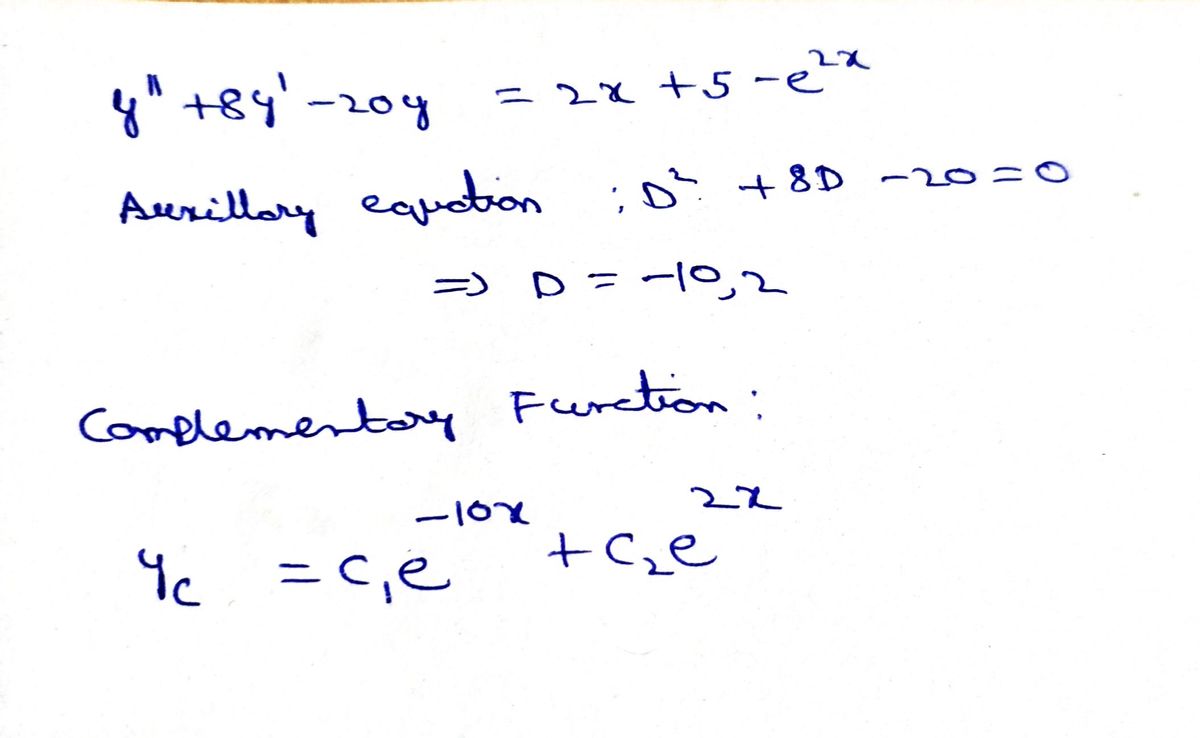 y'' + 8y' - 20y = 2x + 5 - e^{2x}
Auxillary equation : D² + 8D - 20 = 0
=> D = -10, 2
Complementary Function :
y_c = c_1 e^{-10x} + c_2 e^{2x}